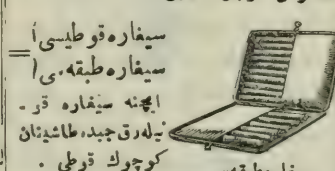 سیغاره قوطیسی
سیغاره طبقه‌سی
ایچنه سیغاره قو-
نیله‌رق جیبده طاشینان
كوچوك قوطی .